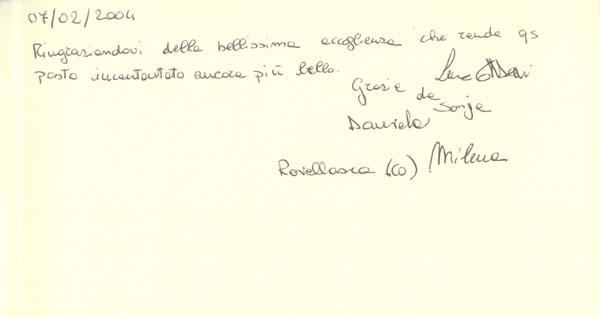 07/02/2004
Ringraziandovi della bellissima accoglienza che rende qs
posto incantantato ancora più bello.
Grazie da Sonja
Daniela
Rovellasca (CO) Milena